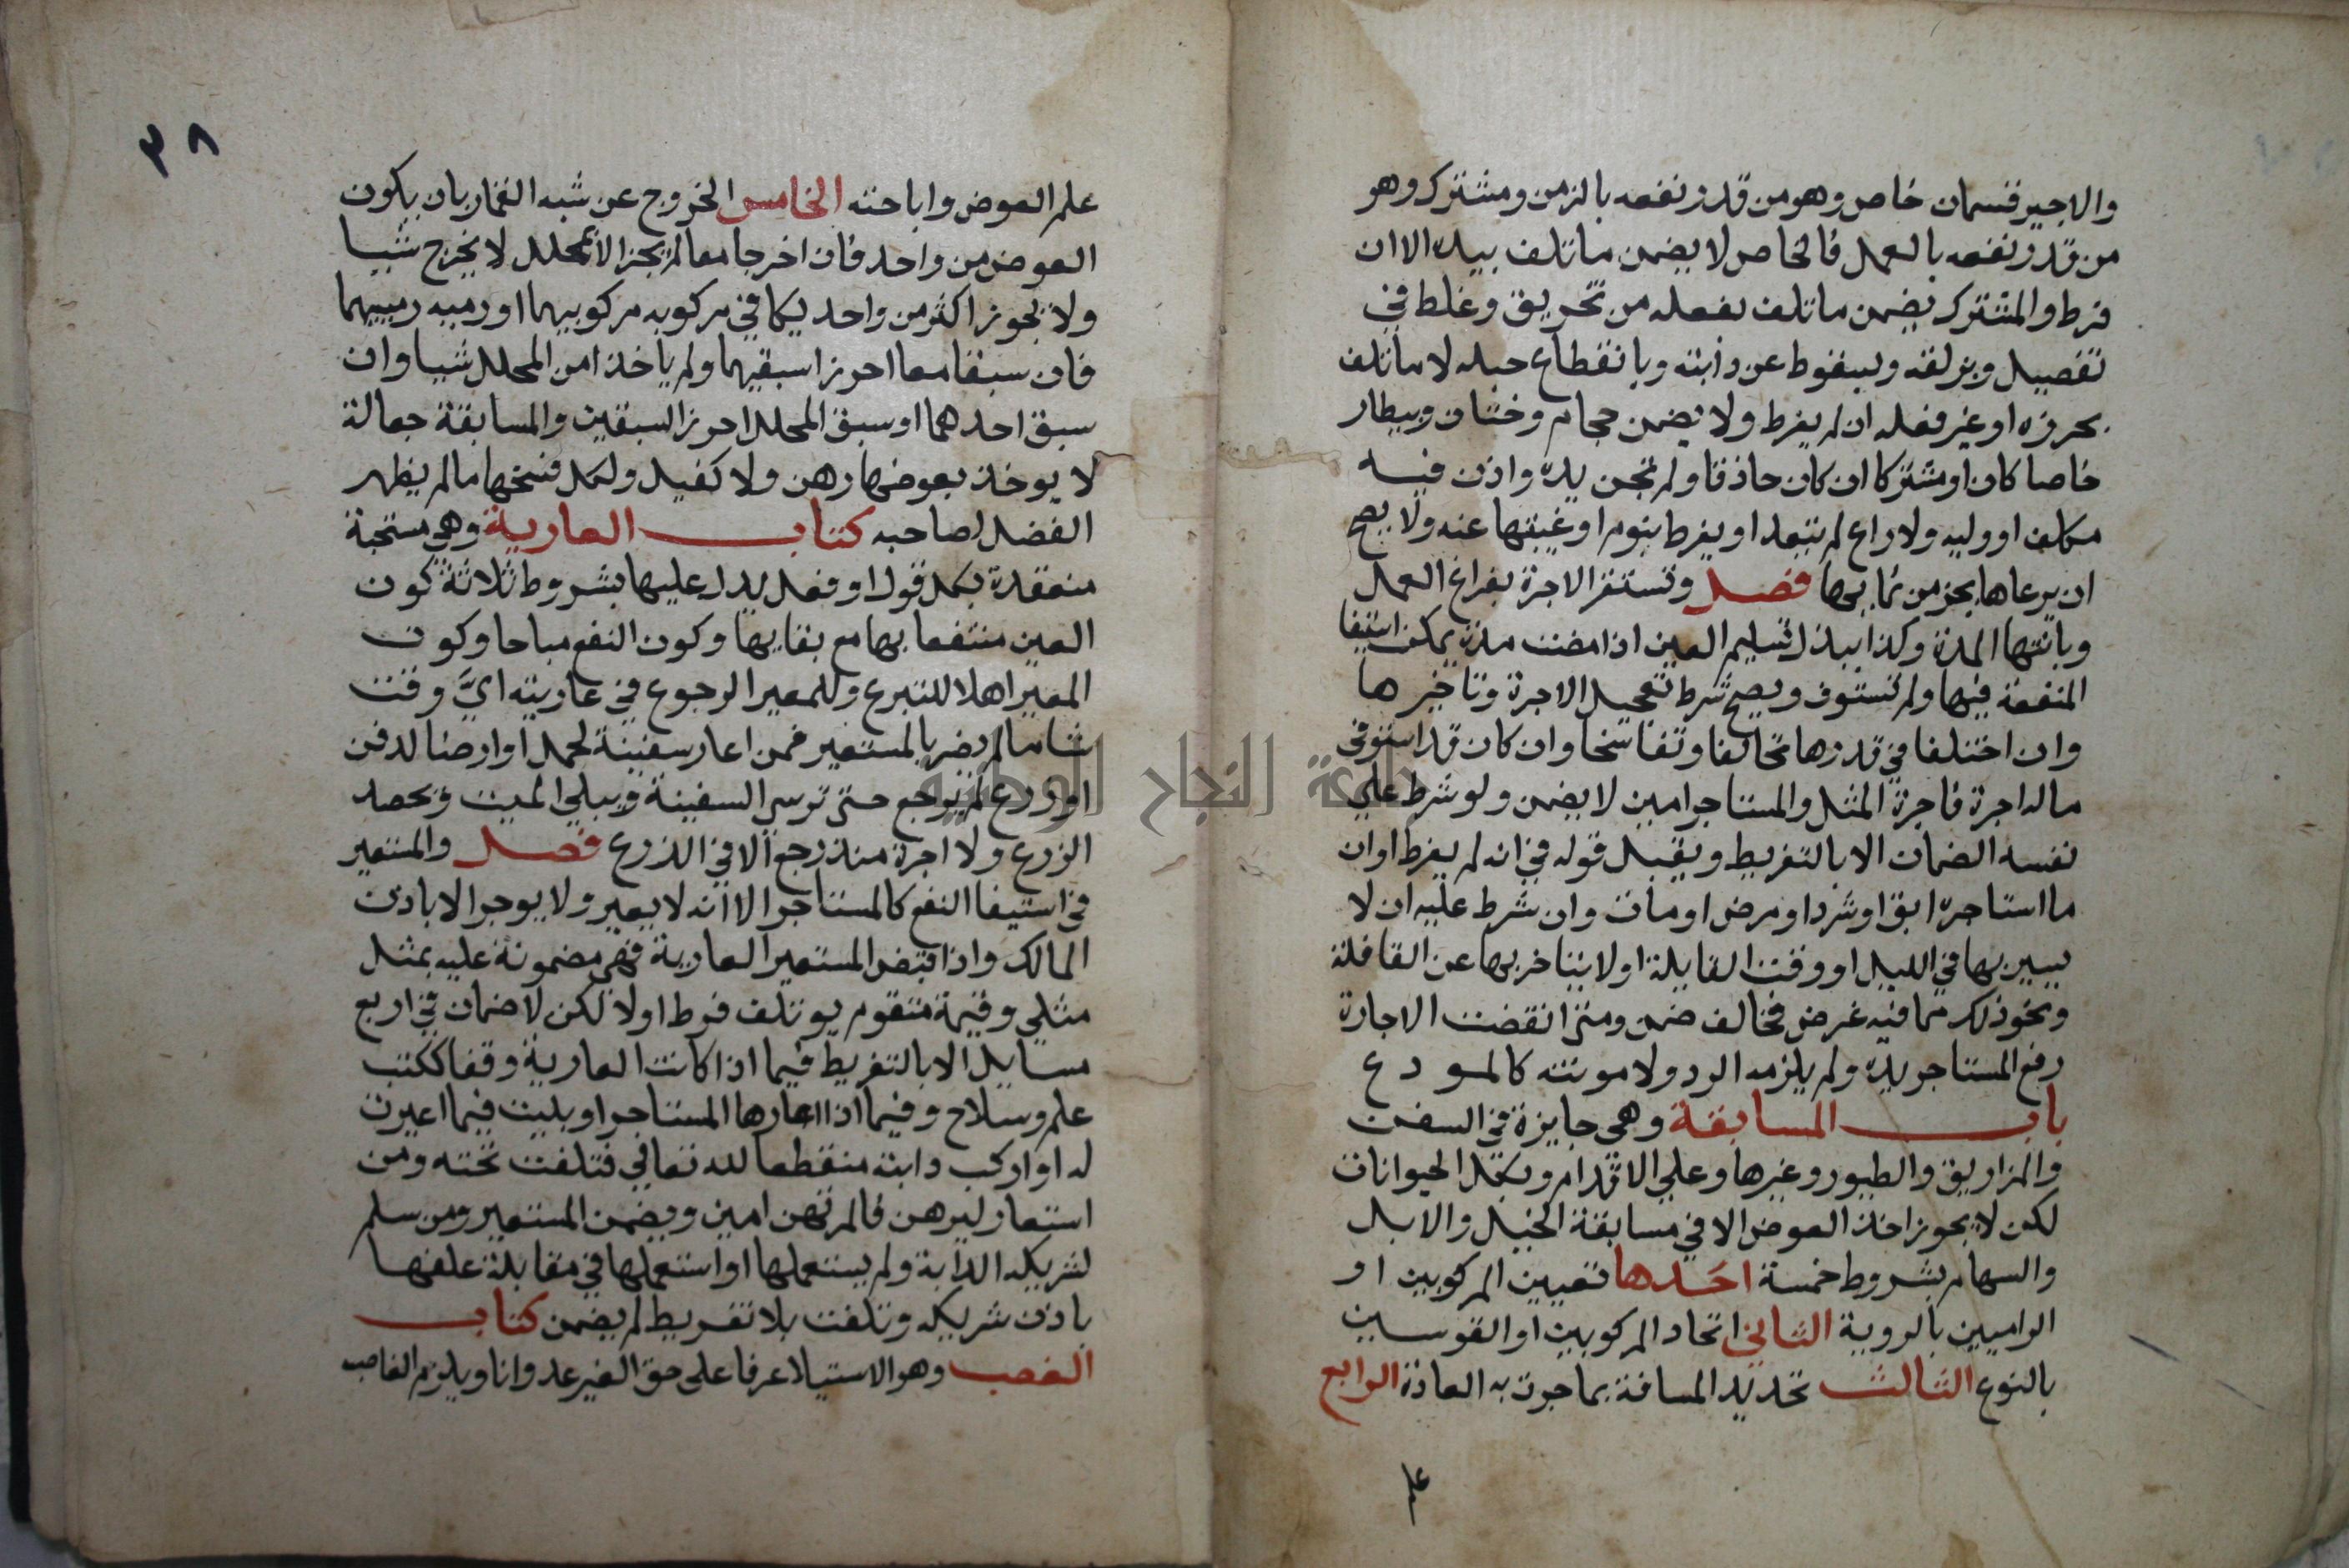 والاجير قسمان خاص وهو من قدر نفعه بالزمن ومشترك وهو
من قدر نفعه بالعمل فالخاص لا يضمن ما تلف بيده الا ان
فرط والمشترك يضمن ما تلف بفعله من تخريق وغلط في
تفصيل وبزلقه وبسقوط عن دابته وبانقطاع حبله لا ما تلف
بحرزه او غير فعله ان لم يفرط ولا يضمن حجام وختان وبيطار
خاصا كان او مشتركا ان كان حاذقا ولم تجن يده واذن فيه
مكلف او وليه ولا راع لم يتعد او يفرط بنوم او غيبتها عنه ولا يصح
ان يرعاها بجز من نمايها فصل وتستقر الاجرة بفراغ العمل
وبانتها المدة وكذا ببذل تسليم العين اذا مضت مدة يمكن استيفا
المنفعة فيها ولم تستوف ويصح شرط تعجيل الاجرة وتاخيرها
وان اختلفا في قدرها تحالفا وتفاسخا وان كان قد استوفي
ماله اجرة فاجرة المثل والمستاجر امين لا يضمن ولو شرط علي
نفسه الضمان الا بالتفريط ويقبل قوله في انه لم يفرط او ان
ما استاجره ابق او شرد او مرض او مات وان شرط عليه ان لا
يسير بها في الليل او وقت القايلة او لا يتاخر بها عن القافلة
ونحو ذلك مما فيه غرض فخالف ضمن ومتي انقضت الاجارة
رفع المستاجر يده ولم يلزمه الرد ولا مونته كالمودع
باب المسابقة وهي جايزة في السفن
والمزاريق والطيور وغيرها وعلي الاقدام وبكل الحيوانات
لكن لا يجوز اخذ العوض الا في مسابقة الخيل والابل
والسهام بشروط خمسة احدها تعيين المركوبين او
الراميين بالروية الثاني اتحاد المركوبين او القوسين
بالنوع الثالث تحديد المسافة بما جرت به العادة الرابع
علم
٣٨
علم العوض واباحته الخامس الخروج عن شبه القمار بان يكون
العوض من واحد فان اخرجا معا لم يجز الا بمحلل لا يخرج شيا
ولا يجوز اكثر من واحد يكافي مركوبه مركوبيهما او رميه رمييهما
فان سبقا معا احرزا سبقيهما ولم ياخذا من المحلل شيا وان
سبق احدهما او سبق المحلل احرز السبقين والمسابقة جعالة
لا يوخذ بعوضها رهن ولا كفيل ولكل فسخها ما لم يظهر
الفضل لصاحبه كتاب العارية وهي مستحبة
منعقدة بكل قول او فعل يدل عليها بشروط ثلاثة كون
العين منتفعا بها مع بقايها وكون النفع مباحا وكون
المعير اهلا للتبرع وللمعير الرجوع في عاريته ايَّ وقت
شا ما لم يضر بالمستعير فمن اعار سفينة لحمل او ارضا لدفن
او زرع لم يرجع حتى ترسي السفينة ويبلي الميت ويحصد
الزرع ولا اجرة منذ رجع الا في الزرع فصل والمستعير
في استيفا النفع كالمستاجر الا انه لا يعير ولا يوجر الا باذن
المالك واذا قبض المستعير العارية فهي مضمونة عليه بمثل
مثلي وقيمة متقوم يوم تلف فرط او لا لكن لا ضمان في اربع
مسايل الا بالتفريط فيما اذا كانت العارية وقفا ككتب
علم وسلاح وفيما اذا اعارها المستاجر او بليت فيما اعيرت
له او اركب دابته منقطعا لله تعالي فتلفت تحته ومن
استعار ليرهن فالمرتهن امين ويضمن المستعير ومن سلم
لشريكه الدابة ولم يستعملها او استعملها في مقابلة علفها
باذن شريكه وتلفت بلا تفريط لم يضمن كتاب
الغصب وهو الاستيلا عرفا على حق الغير عدوانا ويلزم الغاصب
جامعة النجاح الوطنية